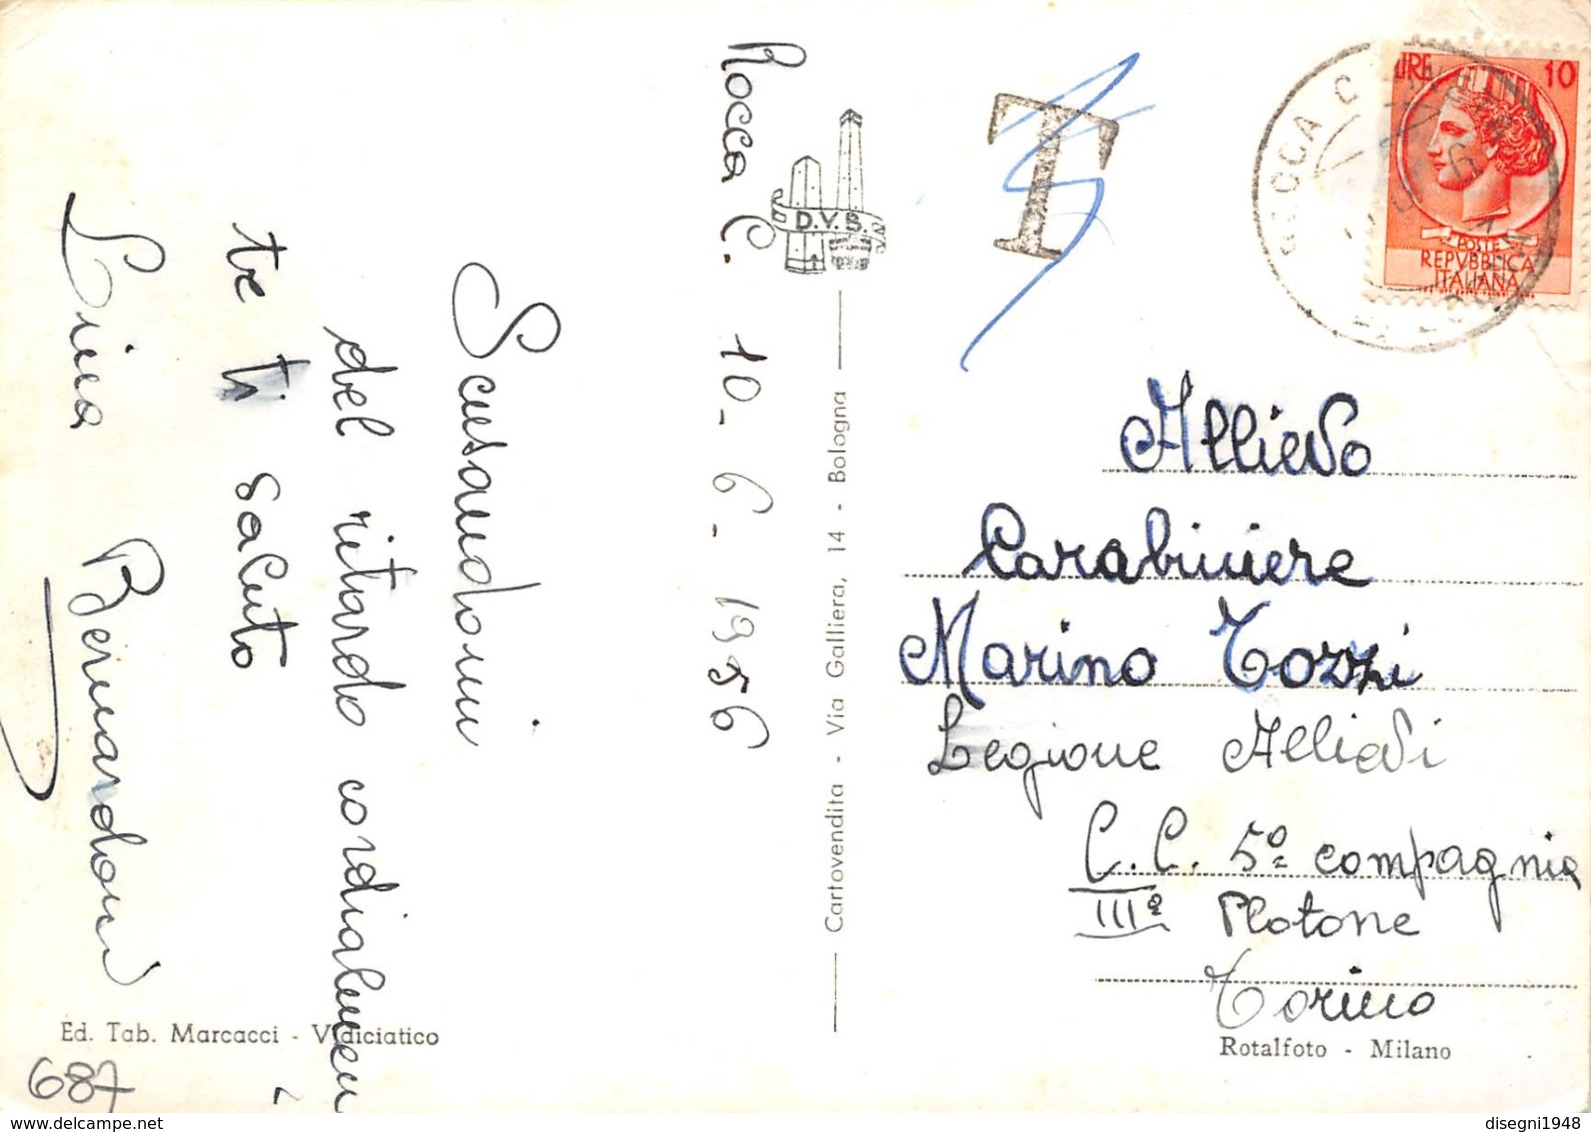 Rocca C. 10-6-1956
Scusandomi
del ritardo cordialmen
te ti saluto
Lina Bernardoni
D.V.B.
Cartovendita - Via Galliera, 14 - Bologna
T
LIRE 10
POSTE
REPVBBLICA
ITALIANA
Allievo
Carabiniere
Marino Tozzi
Legione Allievi
C.C. 5º compagnia
IIIº Plotone
Torino
Ed. Tab. Marcacci - Vidiciatico
Rotalfoto - Milano
687
disegni1948